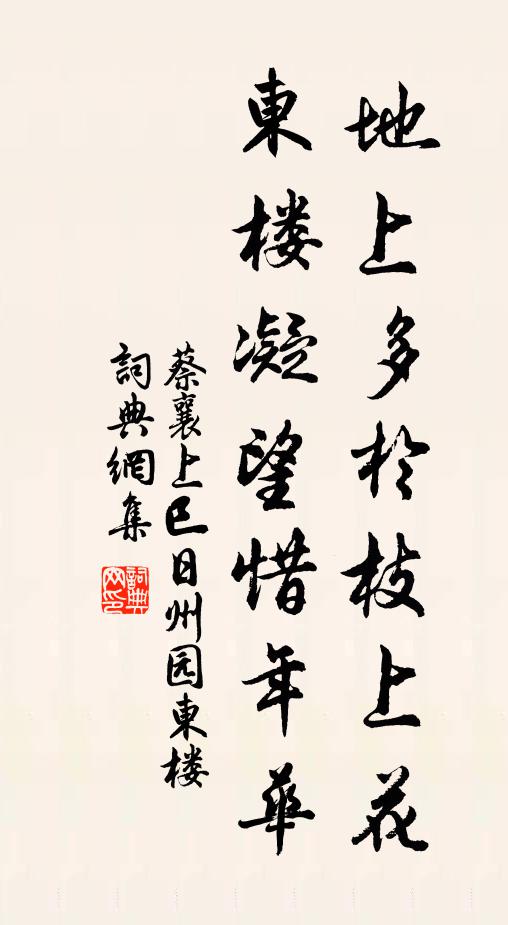 地上多於枝上花
東楼凝望惜年華
蔡襄上巳日州园東楼
詞典網集
詞典
网印